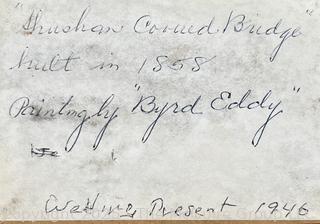 "Shushan Covered Bridge"
built in 1858
Painting by "Byrd Eddy"
Wedding Present 1946